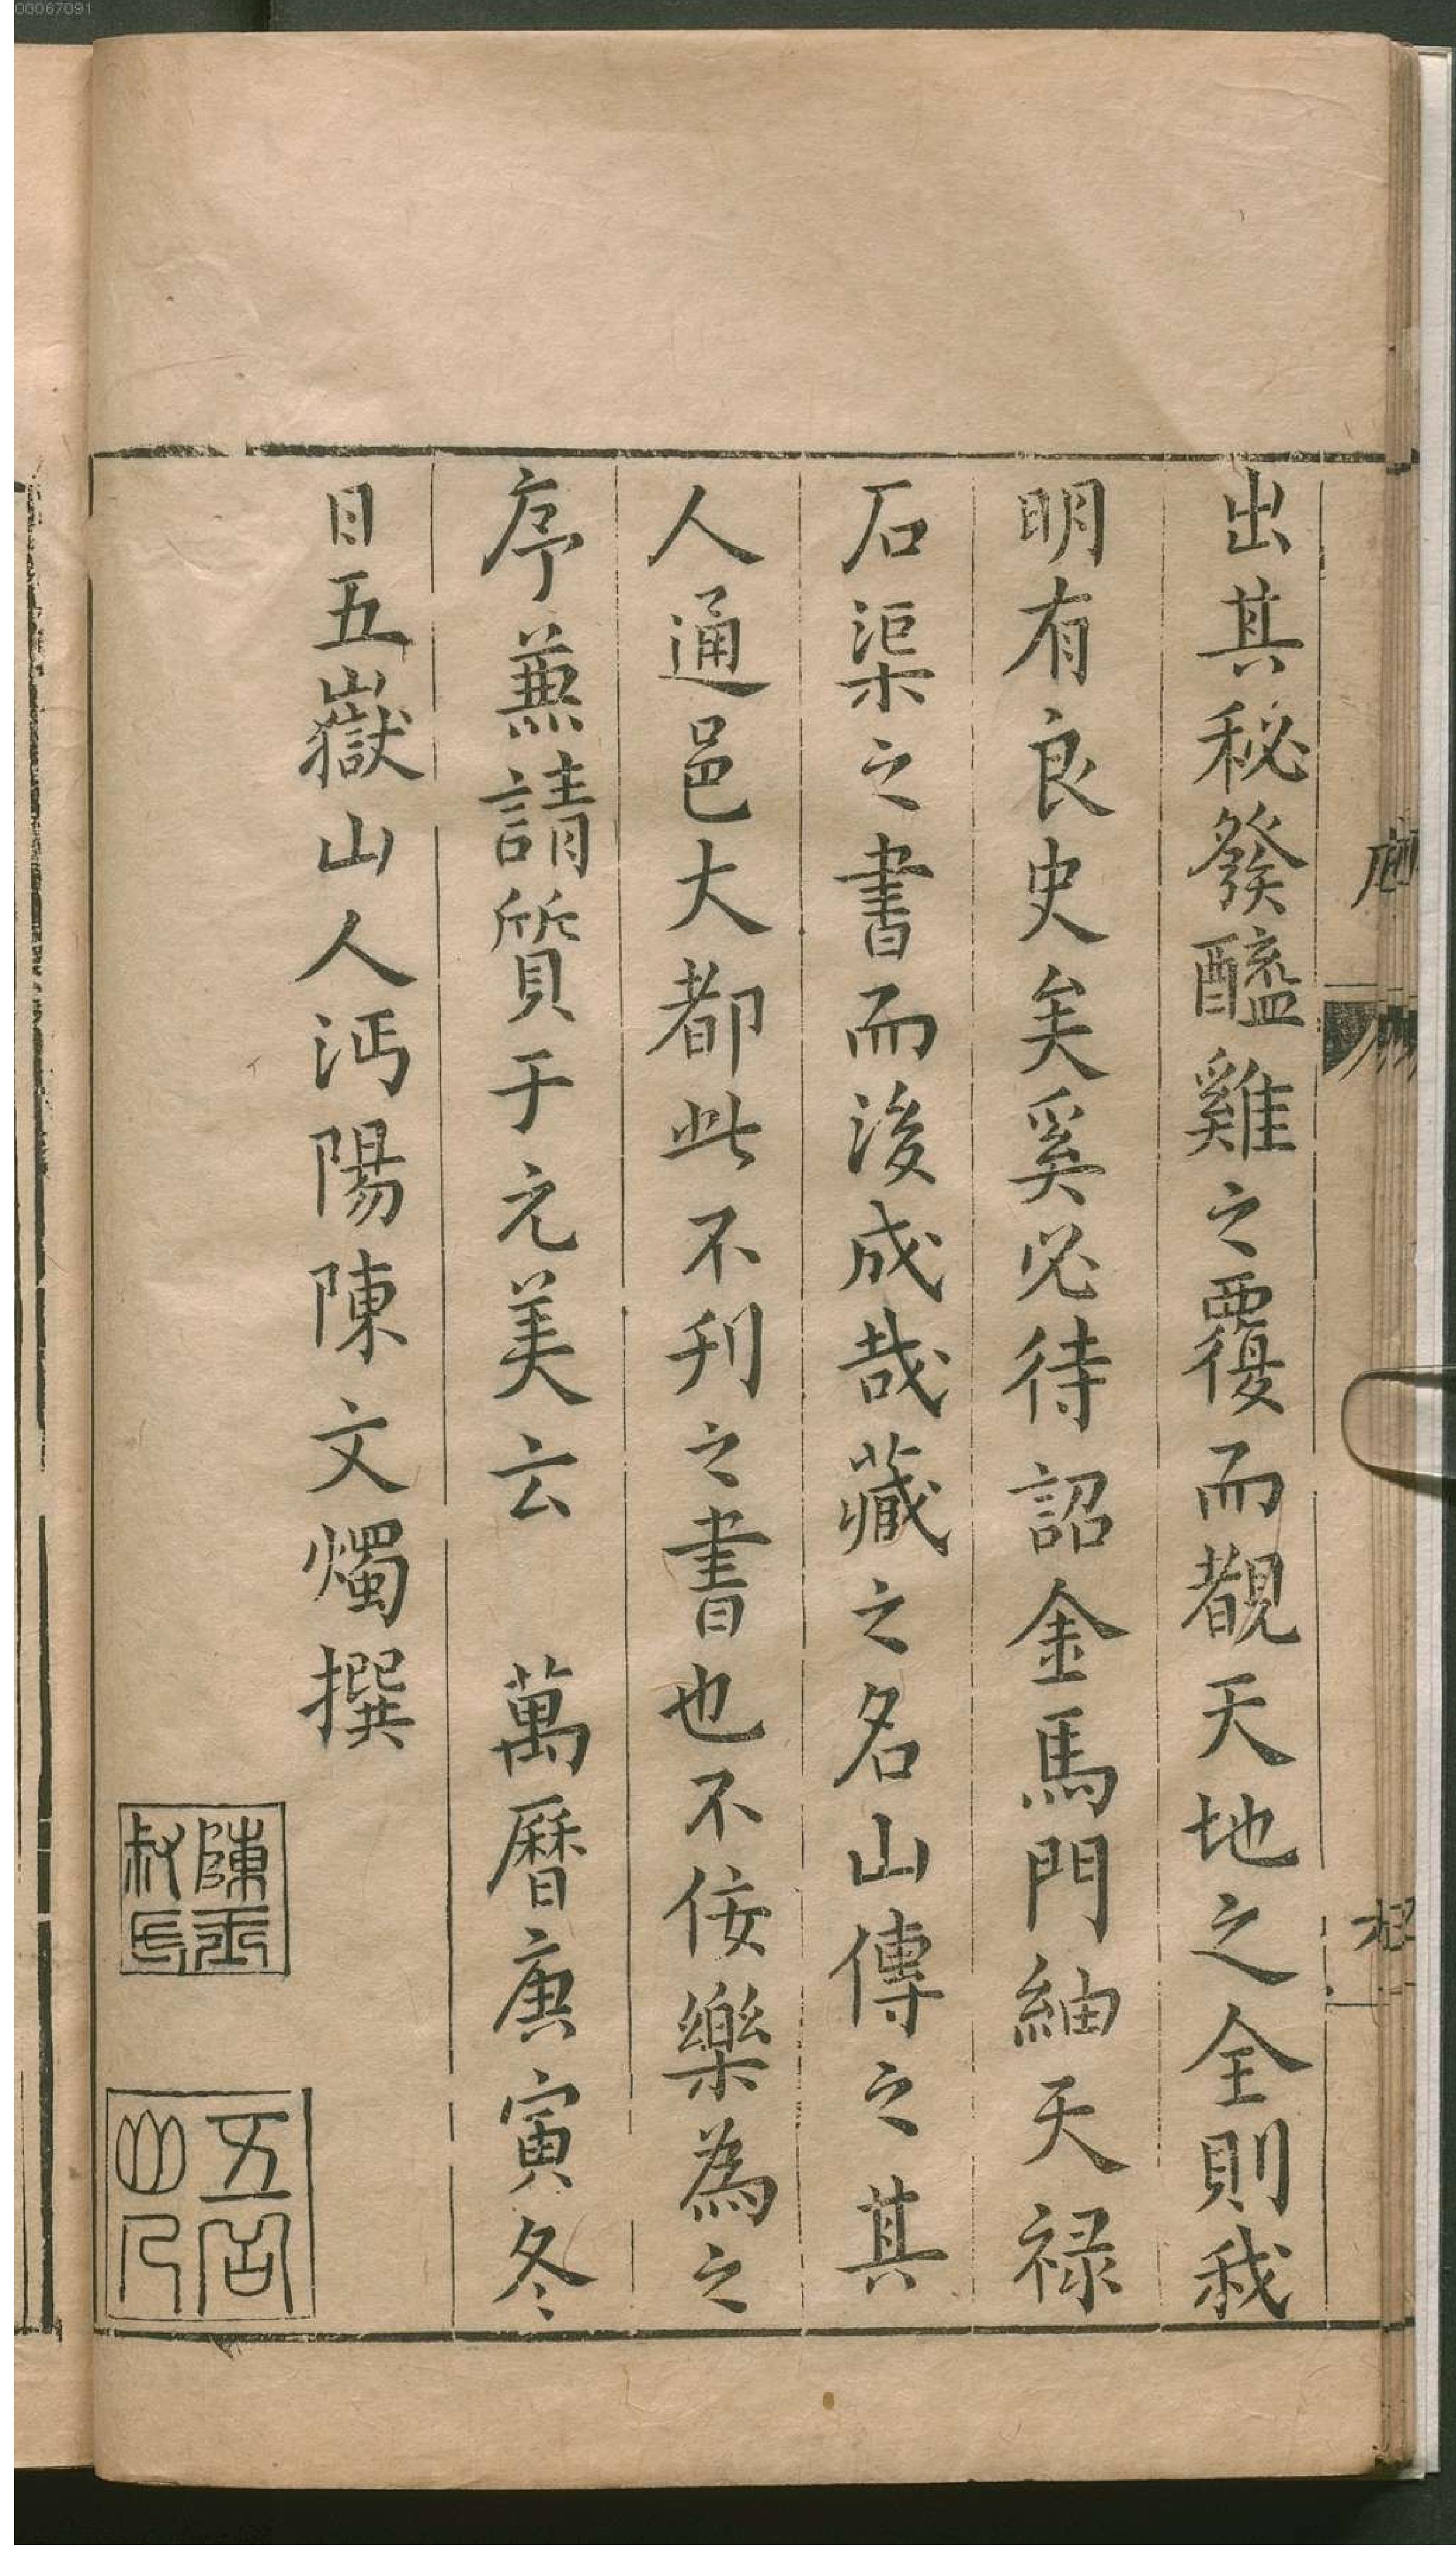 00067091
出其秘發醯雞之覆而覩天地之全則我
明有良史矣奚必待詔金馬門紬天祿
石渠之書而後成哉藏之名山傳之其
人通邑大都此不刊之書也不佞樂為之
序蕪請質于元美云 萬曆庚寅冬
日五嶽山人沔陽陳文燭撰
陳玉
叔氏
五岳
山人